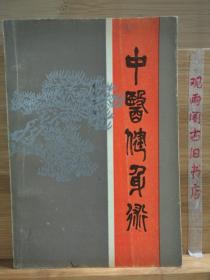 中醫健身術
观雨阁古旧书店